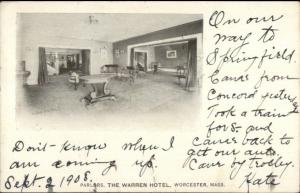 On our
way to
Springfield.
Came from
Concord sister
Took a train
for S- and
Cars back to
act our auto
Cars by trolley.
Kate
Don't- know when I
am coming up.
Sept. 2 1908.
PARLORS, THE WARREN HOTEL, WORCESTER, MASS.